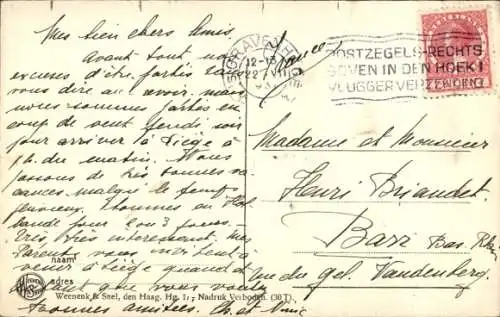 Mes bien chers Amis.
Avant tout nos
excuses d'être partis sans
vous dire au revoir, mais
nous sommes partis en
coup de vent jeudi soir
pour arriver à Liège à
1 h. du matin. Nous
passons de très bonnes va-
cances malgré le temps
pluvieux. Sommes en Hol
lande pour 2 ou 3 jours.
Très, très intéressant. Mes
Parents vous invitent à
venir à Liège quand et
autant que vous voulez
Bonnes amitiés.
naam
adres
Weenenk & Snel, den Haag. Hg. 1; 7 Nadruk Verboden. (30 T).
'S GRAVENHAGE
12-13
22 VII
POSTZEGELS RECHTS
BOVEN IN DEN HOEK!
VLUGGER VERZENDING
NEDERLAND
France
Madame et Monsieur
Henri Briandet.
Barr Bas. Rhin
rue du Gel. Vandenberg.